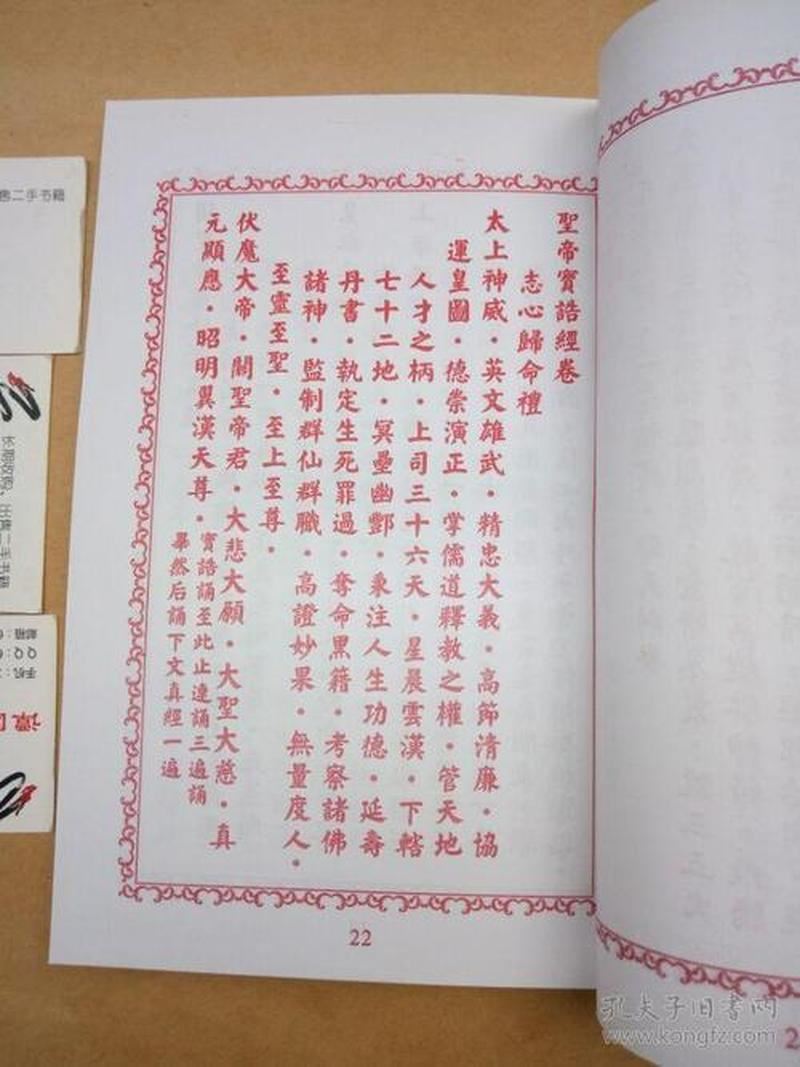 聖帝寶誥經卷
志心歸命禮
太上神威·英文雄武·精忠大義·高節清廉·協
運皇圖·德崇演正·掌儒道釋教之權·管天地
人才之柄·上司三十六天·星晨雲漢·下轄
七十二地·冥壘幽酆·秉注人生功德·延壽
丹書·執定生死罪過·奪命黑籍·考察諸佛
諸神·監制群仙群職·高證妙果·無量度人·
至靈至聖·至上至尊·
伏魔大帝·關聖帝君·大悲大願·大聖大慈·真
元顯應·昭明翼漢天尊·
寶誥誦至此止連誦三遍誦
畢然后誦下文真經一遍
22
售二手书籍
长期收购、出售二手书籍
手机:
QQ:6
邮箱:6
孔夫子旧书网
www.kongfz.com
2